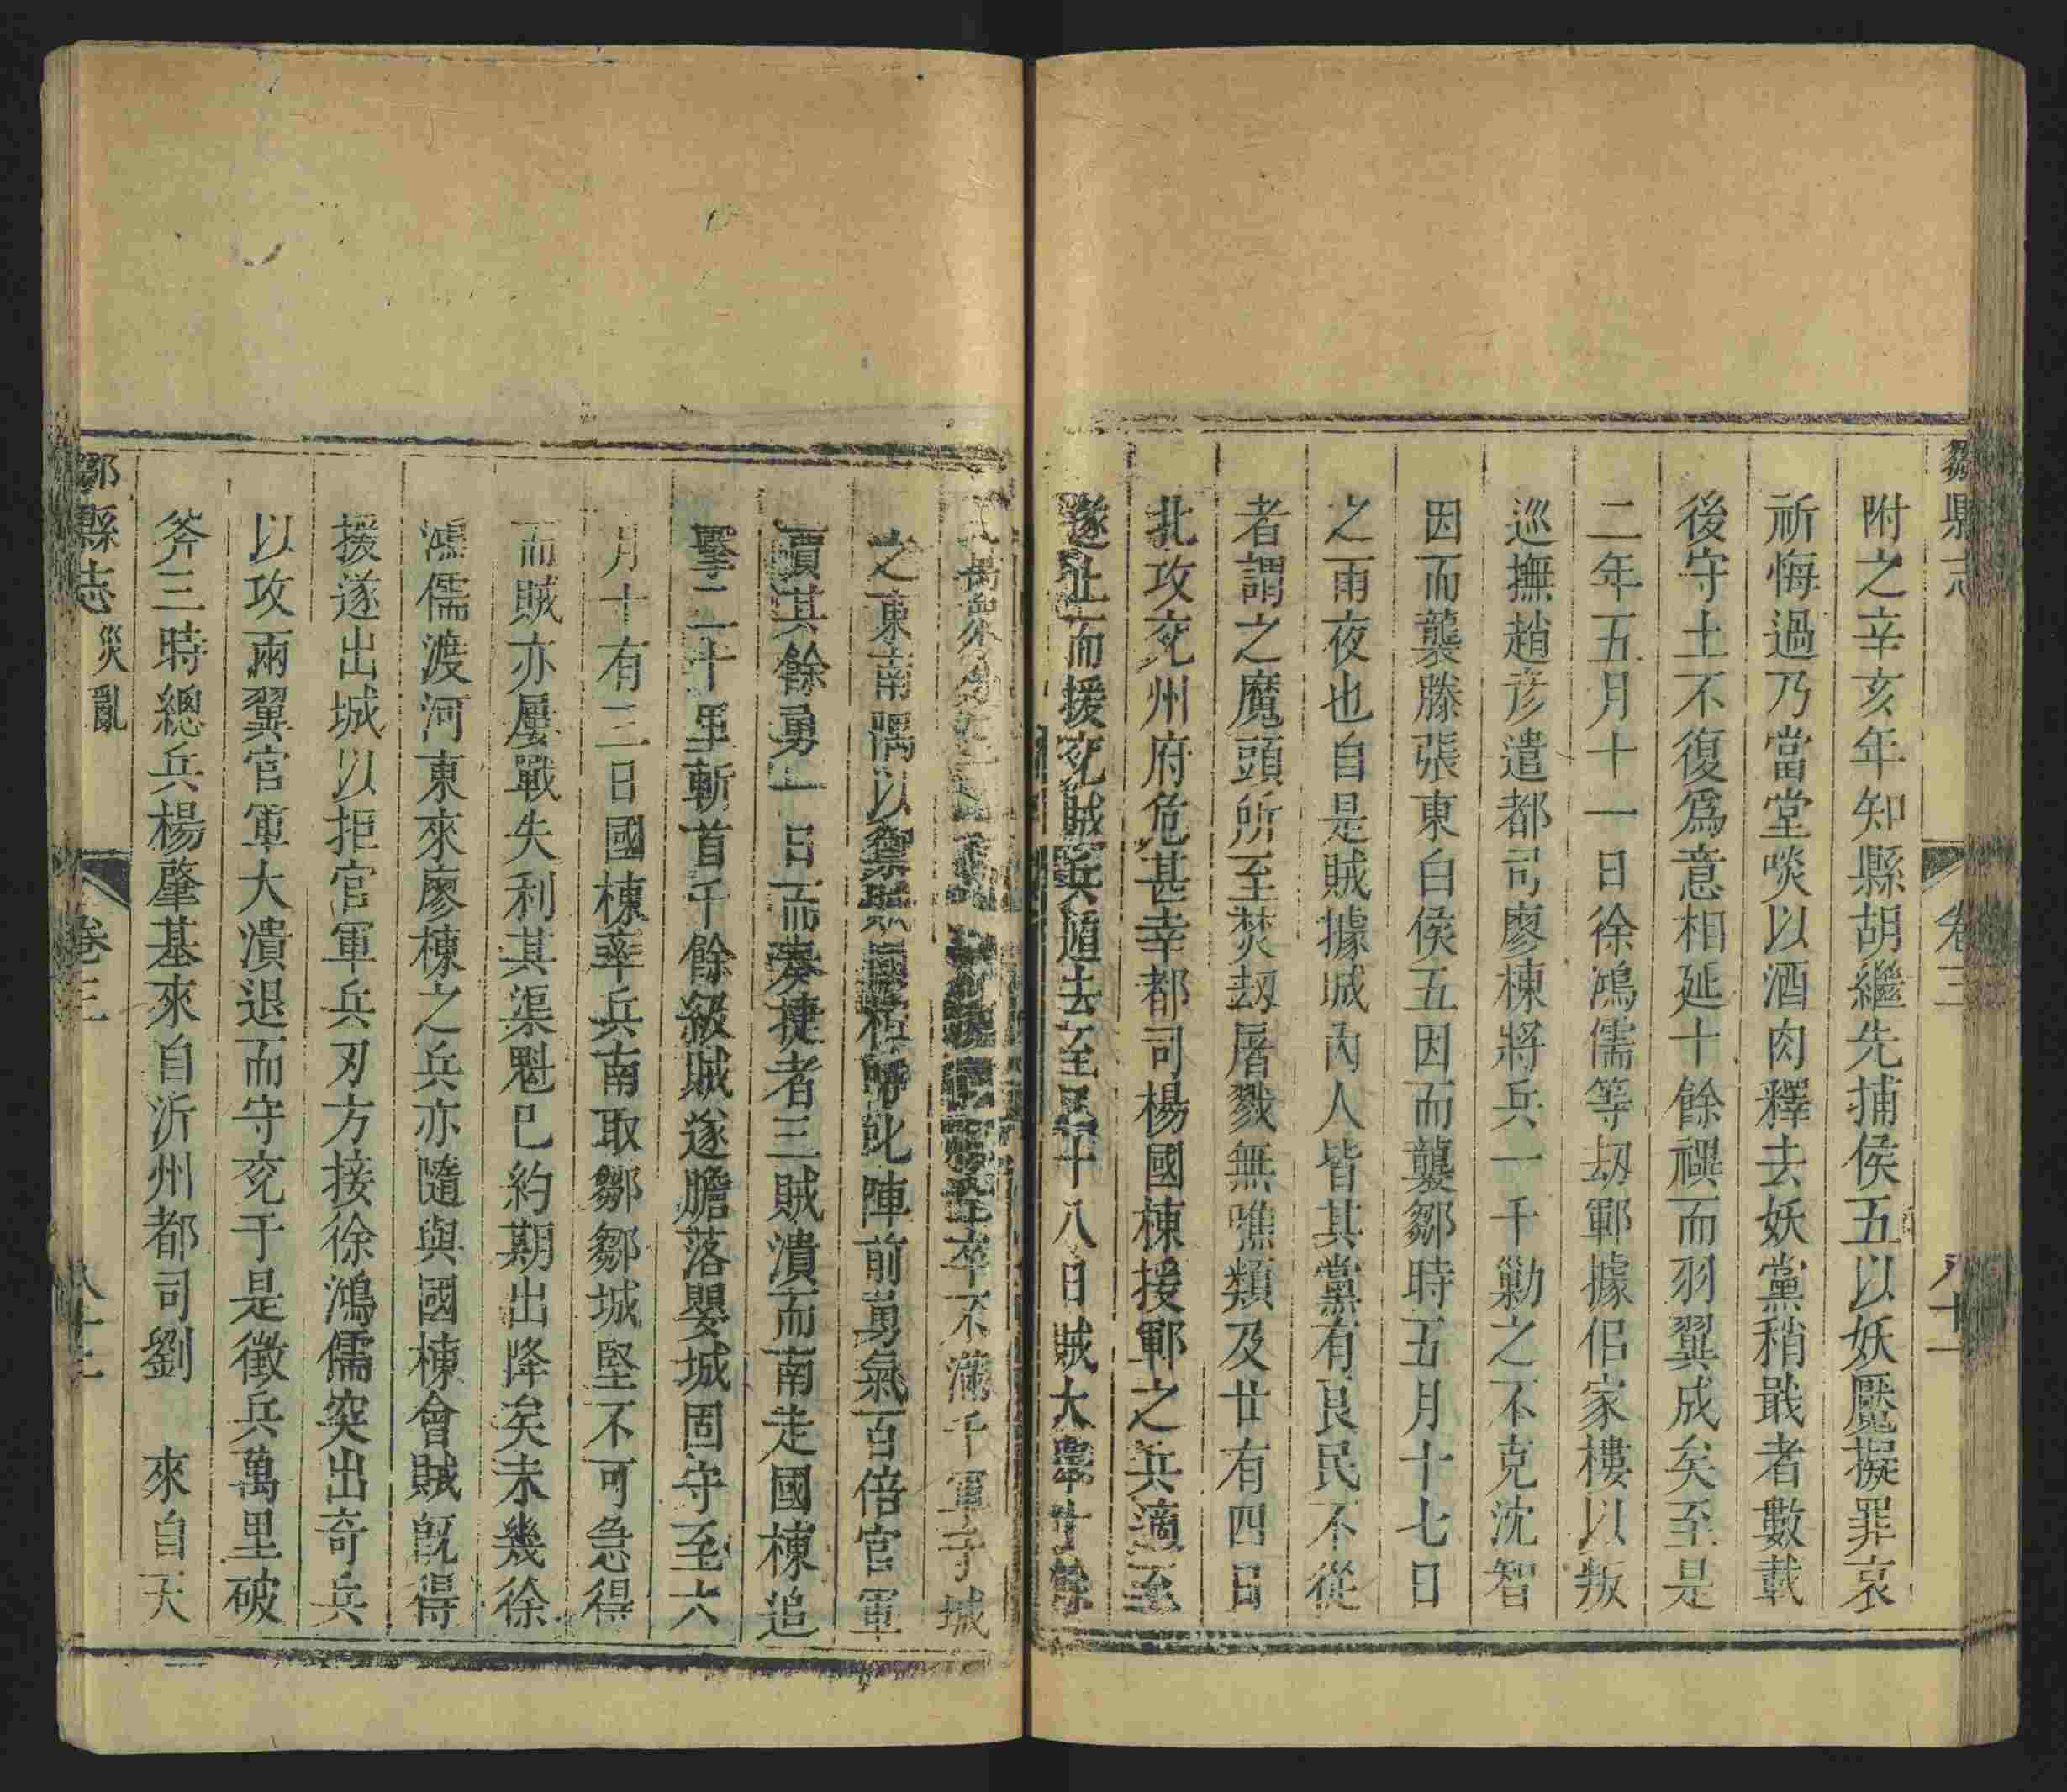 鄒縣志
卷三
八十一
附之辛亥年知縣胡繼先捕侯五以妖魘擬罪哀
祈悔過乃當堂啖以酒肉釋去妖黨稍戢者數載
後守土不復爲意相延十餘禩而羽翼成矣至是
二年五月十一日徐鴻儒等刼鄆據佀家樓以叛
巡撫趙彥遣都司廖棟將兵一千勦之不克沈智
因而襲滕張東白侯五因而襲鄒時五月十七日
之雨夜也自是賊據城內人皆其黨有良民不從
者謂之魔頭所至焚刼屠戮無噍類及廿有四日
北攻兗州府危甚幸都司楊國棟援鄆之兵適至
遂止而援兗賊兵遁去至四十八日賊大舉十餘
卒不滿千軍于城
之東南隅以禦賊國棟時卽陣前勇氣百倍官軍
賈其餘勇一日而奏捷者三賊潰而南走國棟追
擊二十里斬首千餘級賊遂膽落嬰城固守至六
月十有三日國棟率兵南取鄒鄒城堅不可急得
而賊亦屢戰失利其渠魁已約期出降矣未幾徐
鴻儒渡河東來廖棟之兵亦隨與國棟會賊旣得
援遂出城以拒官軍兵刃方接徐鴻儒突出奇兵
以攻兩翼官軍大潰退而守兗于是徵兵萬里破
斧三時總兵楊肇基來自沂州都司劉　來自天
鄒縣志 災亂
卷三
八十二